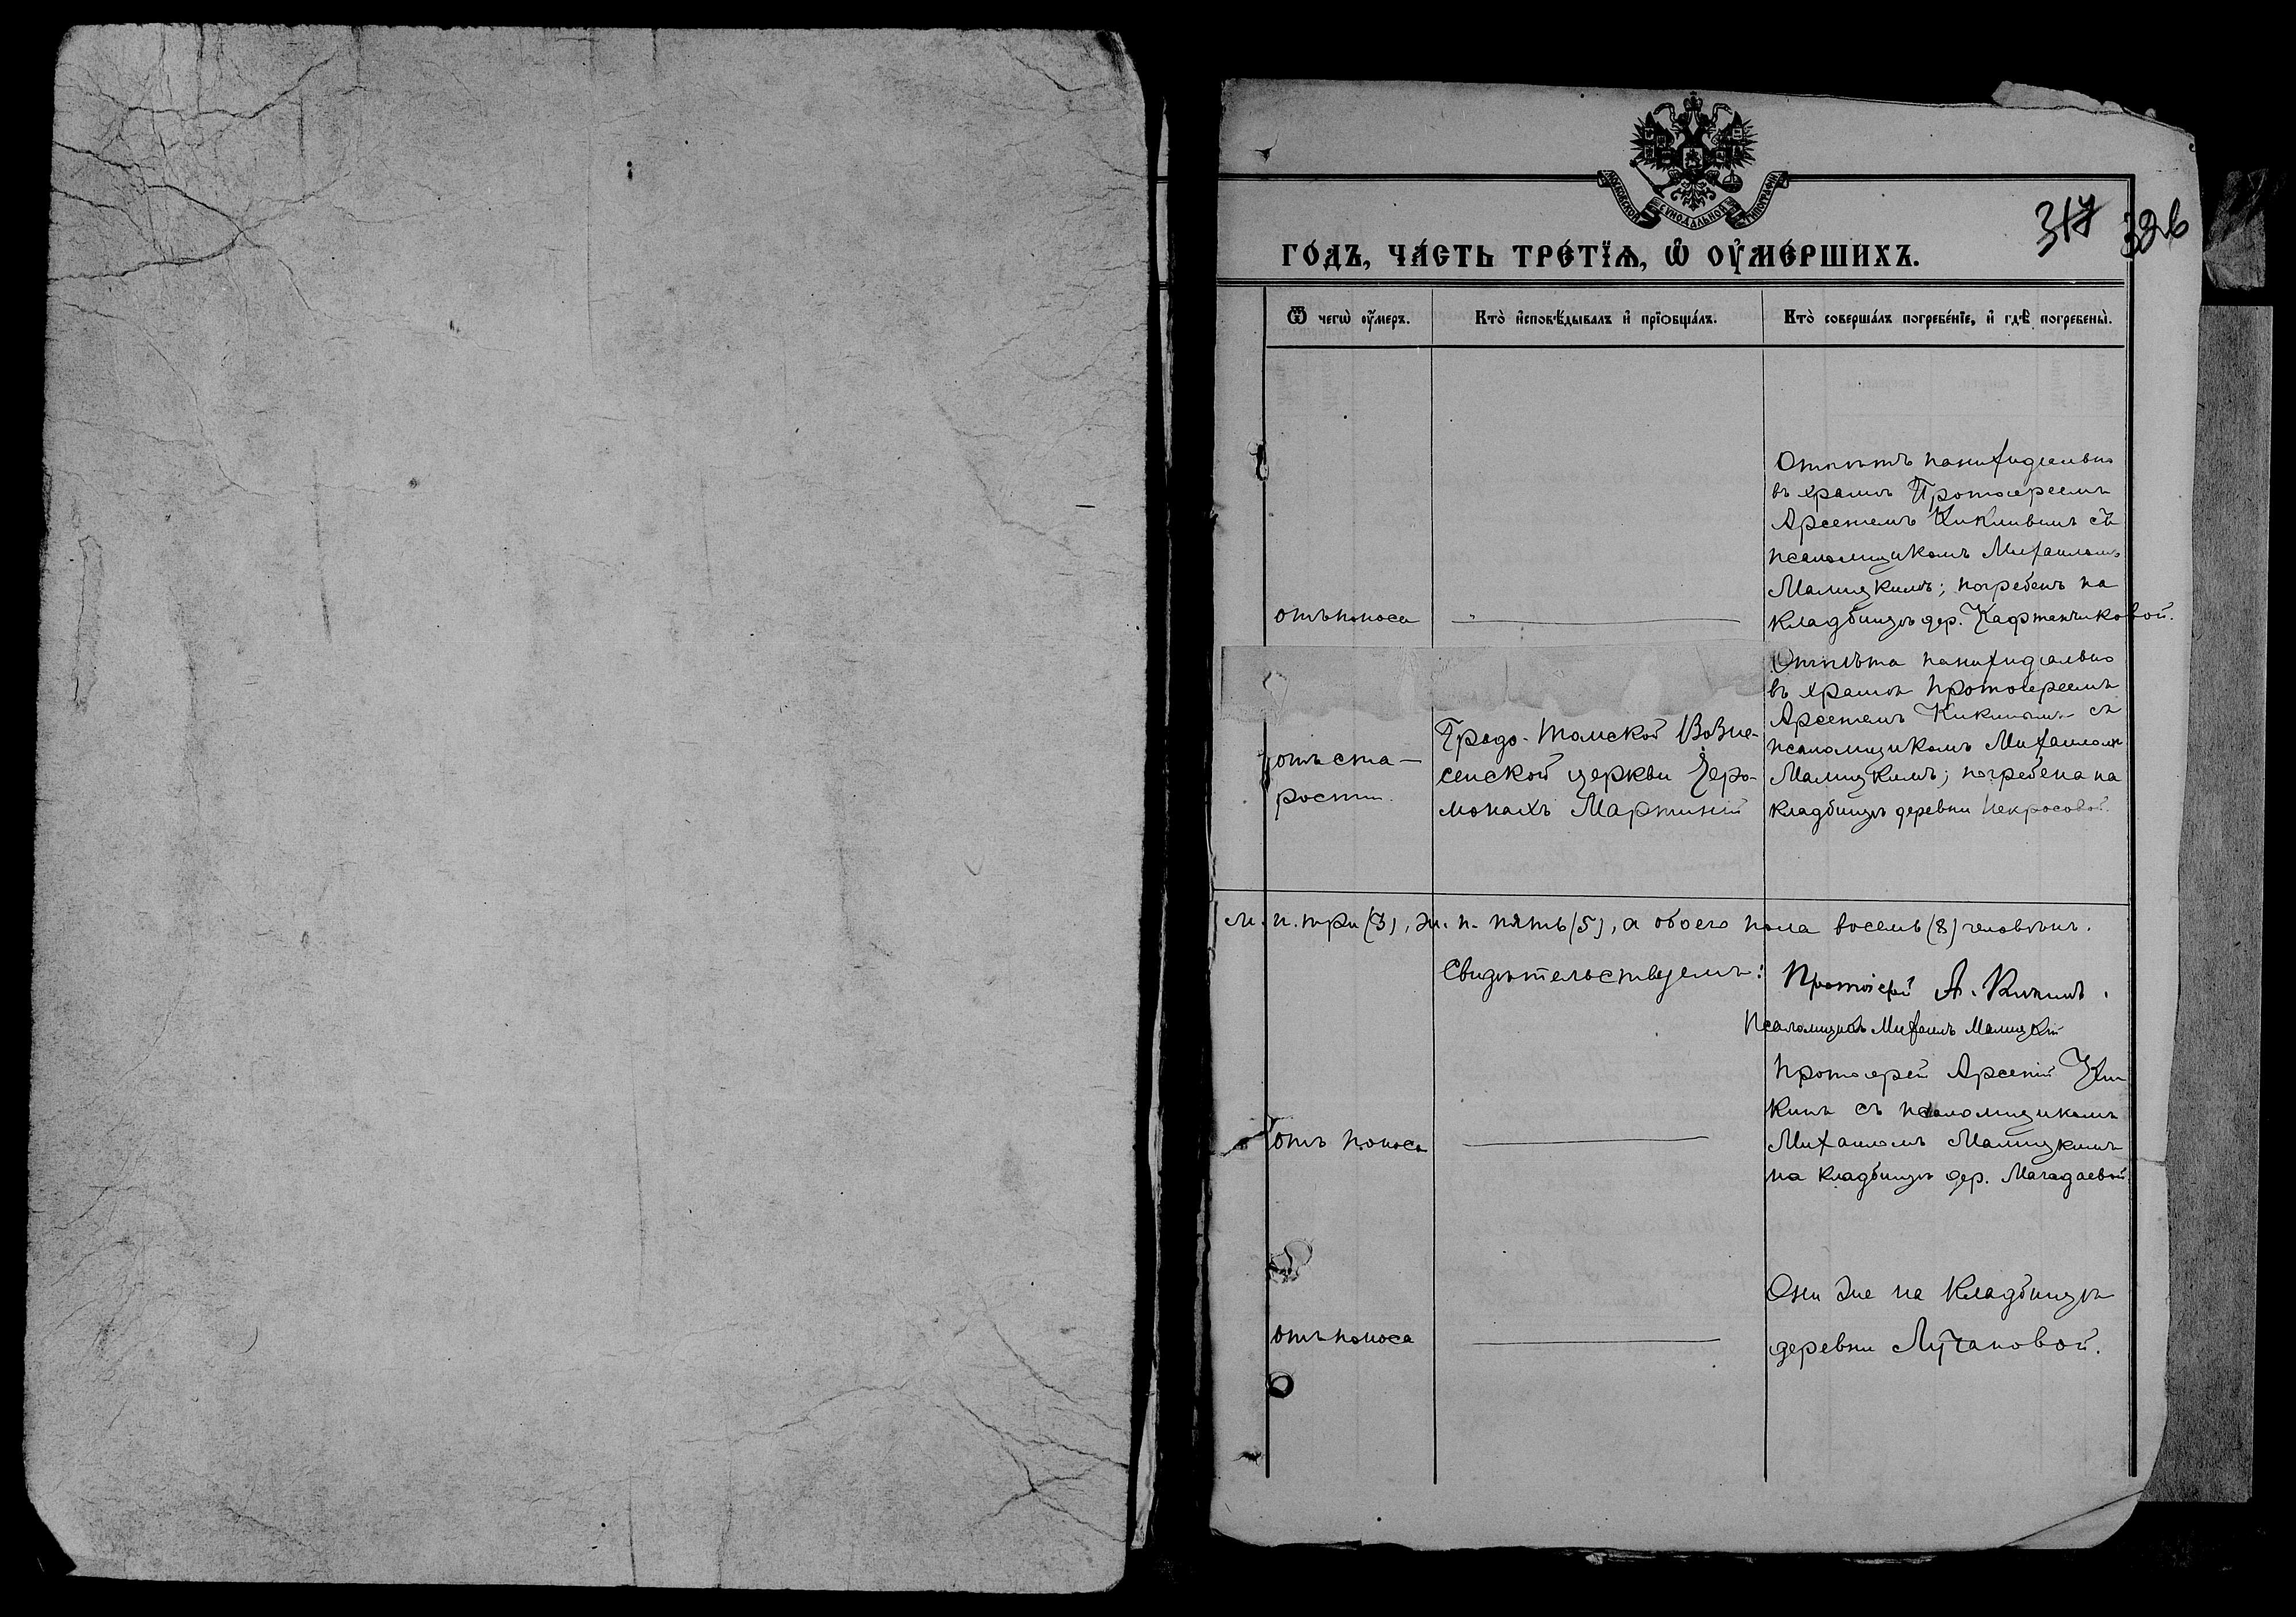 МОСКОВСКОЙ СѴНОДАЛЬНОЙ ТИПОГРАФІИ
317 326
ГО́ДЪ, ЧА́СТЬ ТРЕ́ТЇѦ, Ѡ҆ ОУ҆МЕ́РШИХЪ.
Ѿ чегѡ̀ оу҆́меръ.
Кто̀ и҆сповѣ́дывалъ и҆ прїѻбща́лъ.
Кто̀ соверша́лъ погребе́нїе, и҆ гдѣ̀ погребены̀.
отъ поноса
Отпѣтъ панихидально
въ храмѣ Протоіереемъ
Арсеніемъ Кикинымъ съ
псаломщикомъ Михаиломъ
Малицкимъ; погребенъ на
кладбищѣ дер. Кафтанчиковой.
отъ ста-
рости.
Градо-Томской Возне-
сенской церкви Іеро-
монахъ Мартиній
Отпѣта панихидально
въ храмѣ Протоіереемъ
Арсеніемъ Кикинымъ съ
псаломщикомъ Михаиломъ
Малицкимъ; погребена на
кладбищѣ деревни Некрасовой.
м. п. три (3), ж. п. пять (5), а обоего пола восемь (8) человѣкъ.
Свидѣтельствуемъ: Протоіерей А. Кикинъ.
Псаломщикъ Михаилъ Малицкій
отъ поноса
Протоіерей Арсеній Ки-
кинъ съ псаломщикомъ
Михаиломъ Малицкимъ
на кладбищѣ дер. Магадаевой
отъ поноса
Они же на кладбищѣ
деревни Лучановой.